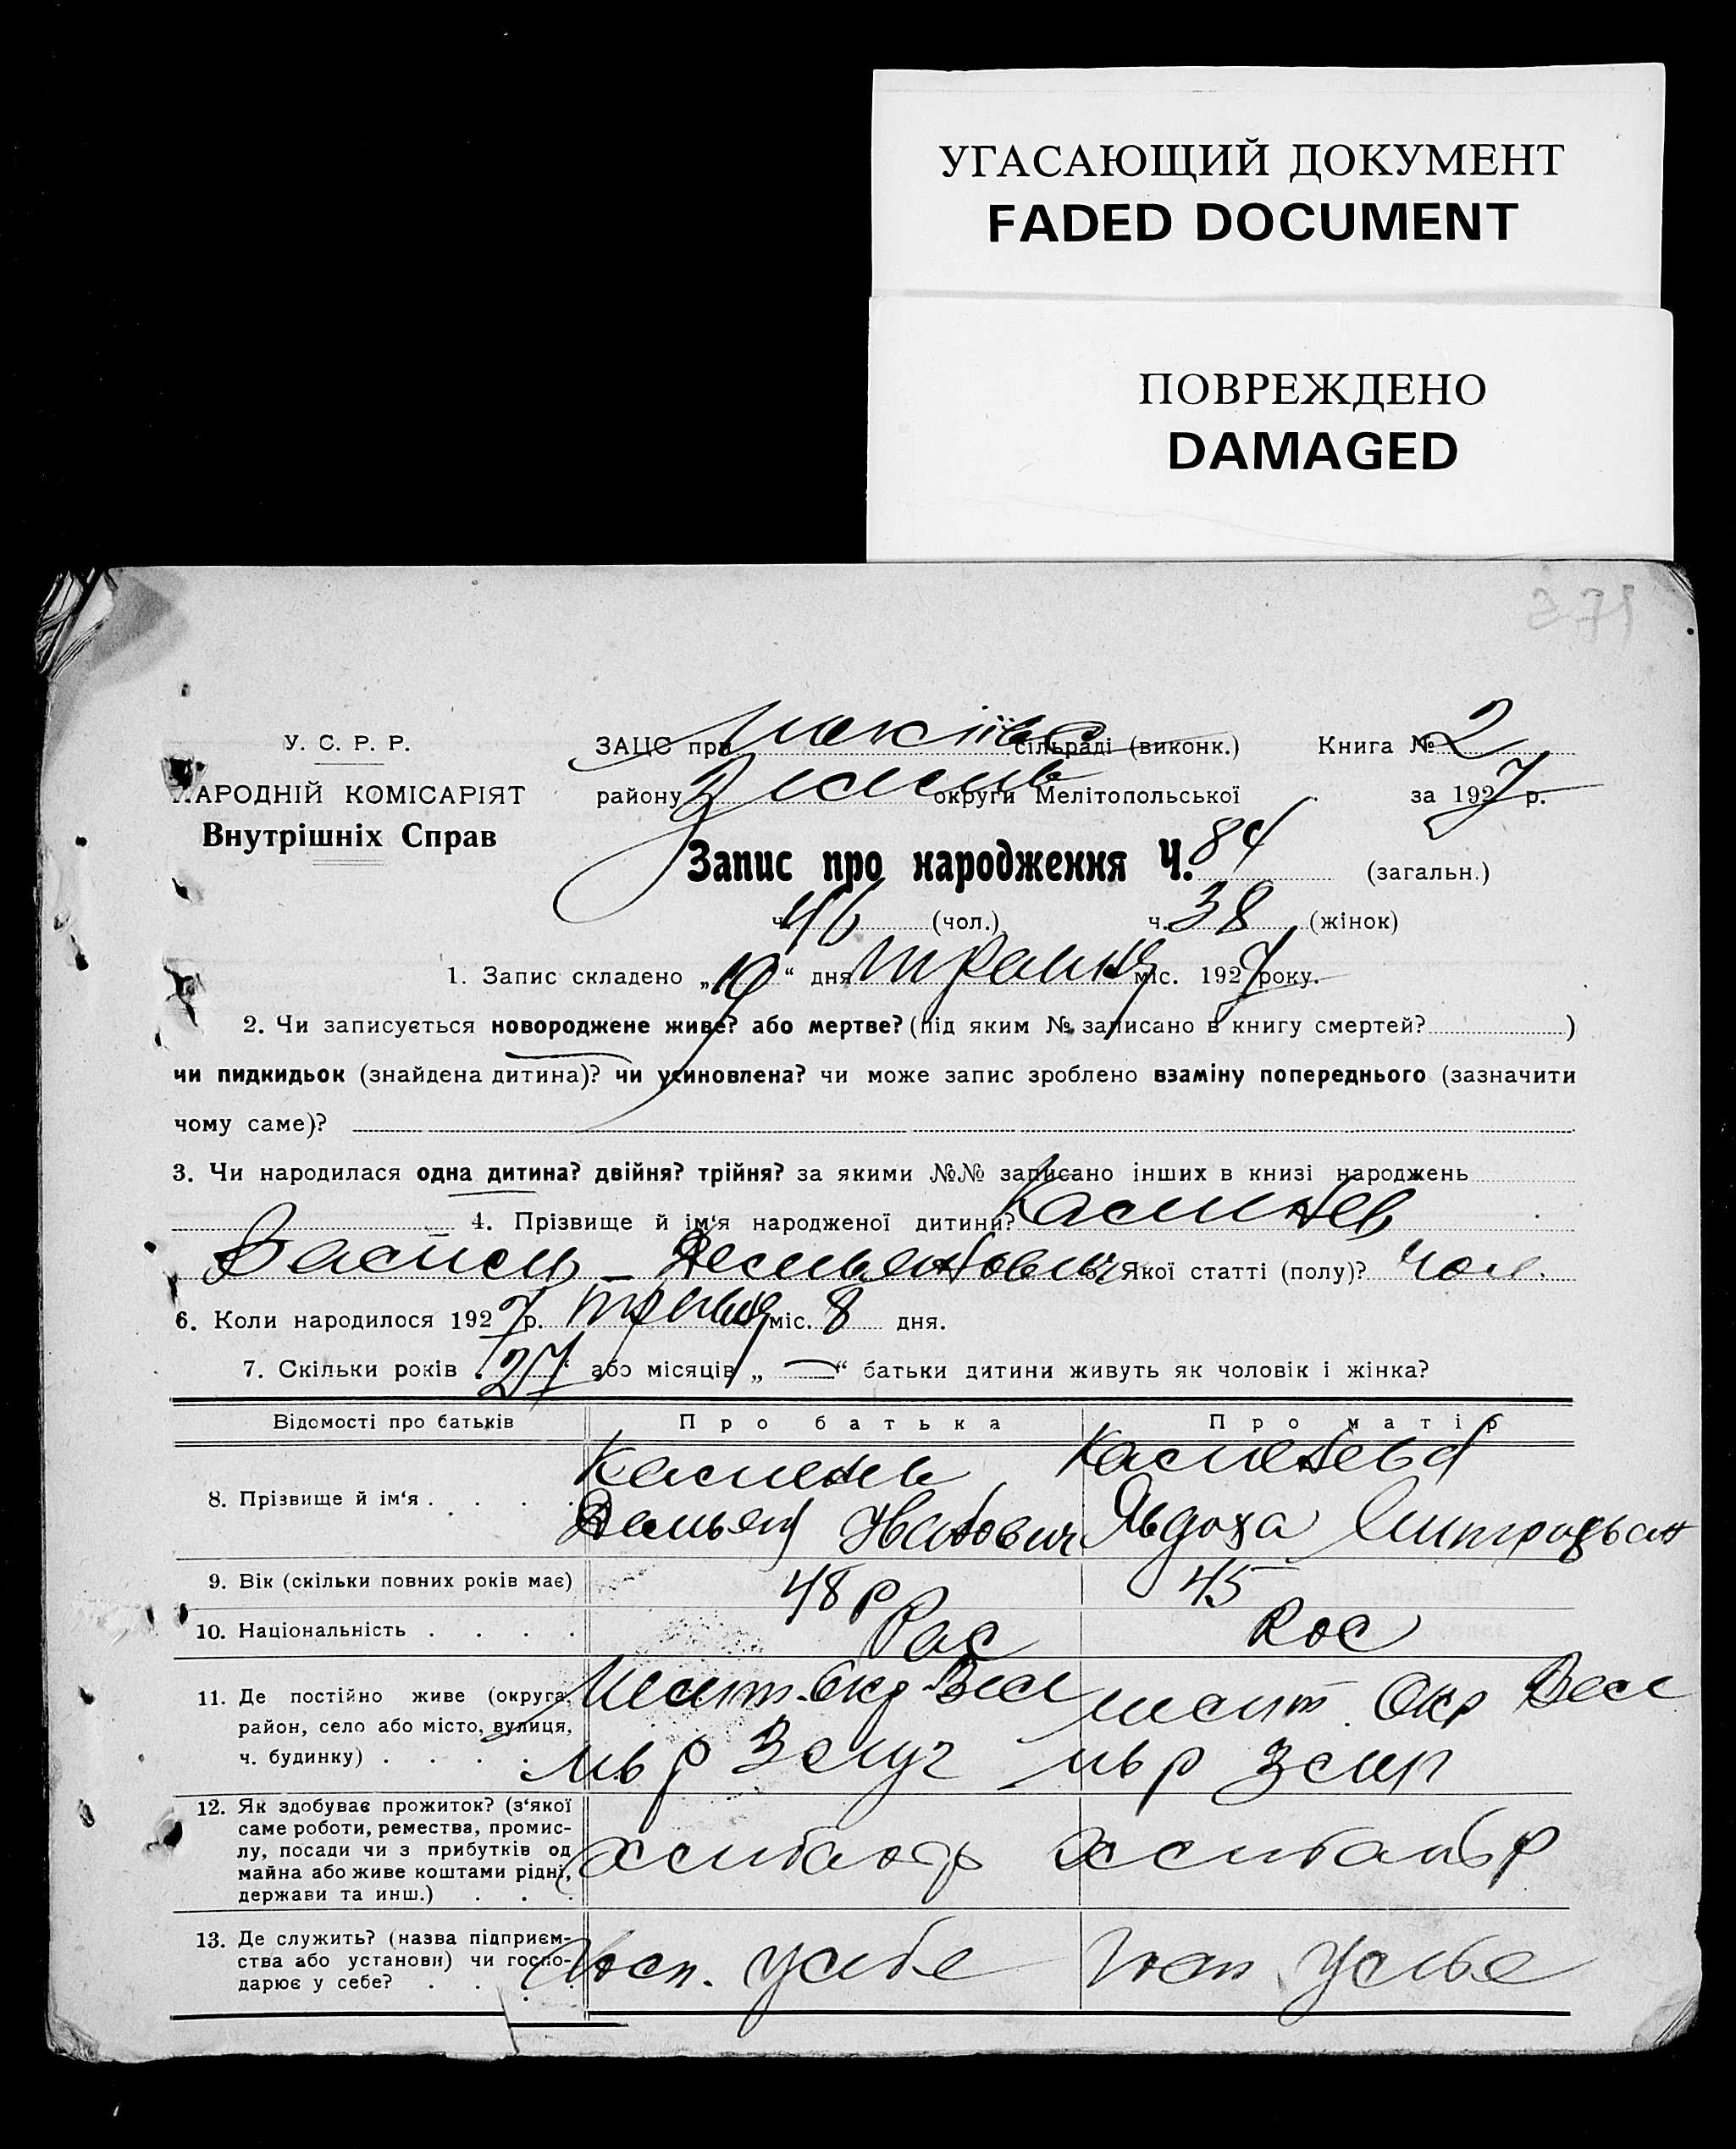 УГАСАЮЩИЙ ДОКУМЕНТ
FADED DOCUMENT
ПОВРЕЖДЕНО
DAMAGED
У. С. Р. Р.
НАРОДНІЙ КОМІСАРІЯТ
Внутрішніх Справ
ЗАЦС при сільраді (виконк.) Книга № 2
району округи Мелітопольської за 1927 р.
Запис про народження Ч. 84 (загальн.)
ч. 46 (чол.) ч. 38 (жінок)
1. Запис складено „10“ дня травня міс. 1927 року.
2. Чи записується новороджене живе? або мертве? (під яким № записано в книгу смертей? )
чи пидкидьок (знайдена дитина)? чи усиновлена? чи може запис зроблено взаміну попереднього (зазначити
чому саме)?
3. Чи народилася одна дитина? двійня? трійня? за якими №№ записано інших в книзі народжень
4. Прізвище й ім'я народженої дитини?
Демьянович Якої статті (полу)? Чол.
6. Коли народилося 1927 р. травня міс. 8 дня.
7. Скільки років „27“ або місяців „—“ батьки дитини живуть як чоловік і жінка?
Відомості про батьків Про батька Про матір
8. Прізвище й ім'я . . . . Демьян Иванович Явдоха
9. Вік (скільки повних років має) 48 р 45
10. Національність . . . . Рос Рос
11. Де постійно живе (округа, Мелит. Окр Весел мелит. Окр Весел
район, село або місто, вулиця,
ч. будинку) . . . .
12. Як здобуває прожиток? (з'якої
саме роботи, ремества, промис-
лу, посади чи з прибутків од
майна або живе коштами рідні, хлібороб
держави та инш.) . . .
13. Де служить? (назва підприєм-
ства або установи) чи госпо- Госп. у себе Госп. у себе
дарює у себе? . . . .